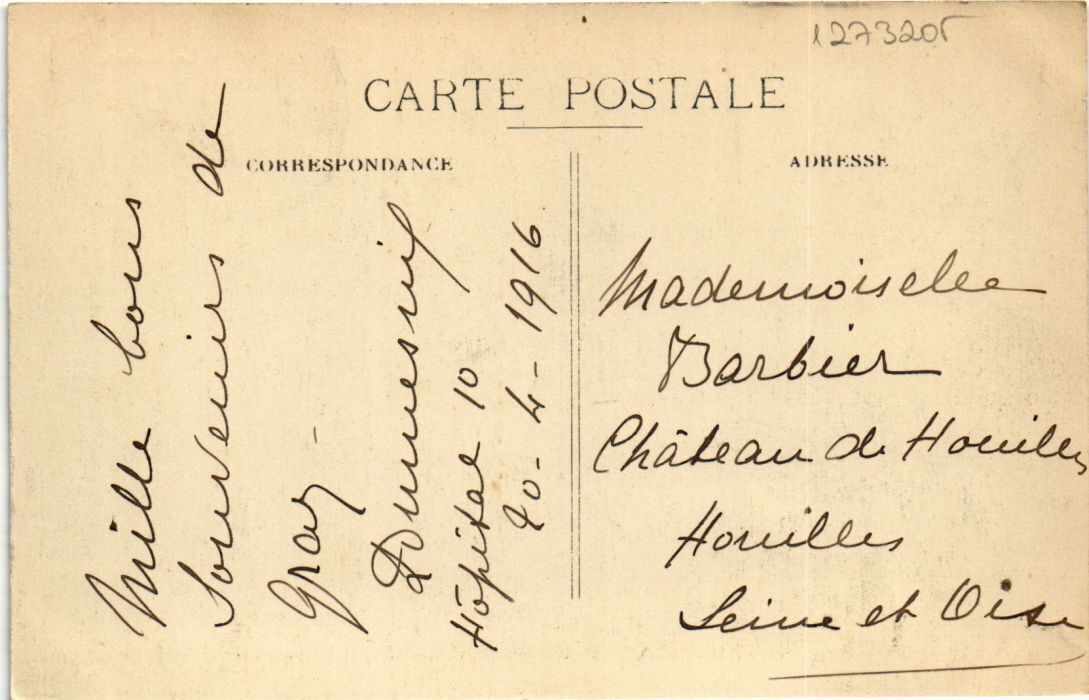 1273205
CARTE POSTALE
CORRESPONDANCE
Mille bons
Souvenirs de
Gray
Dumesnil
Hôpital 10
20-4-1916
ADRESSE
Mademoiselle
Barbier
Château de Houilles
Houilles
Seine et Oise